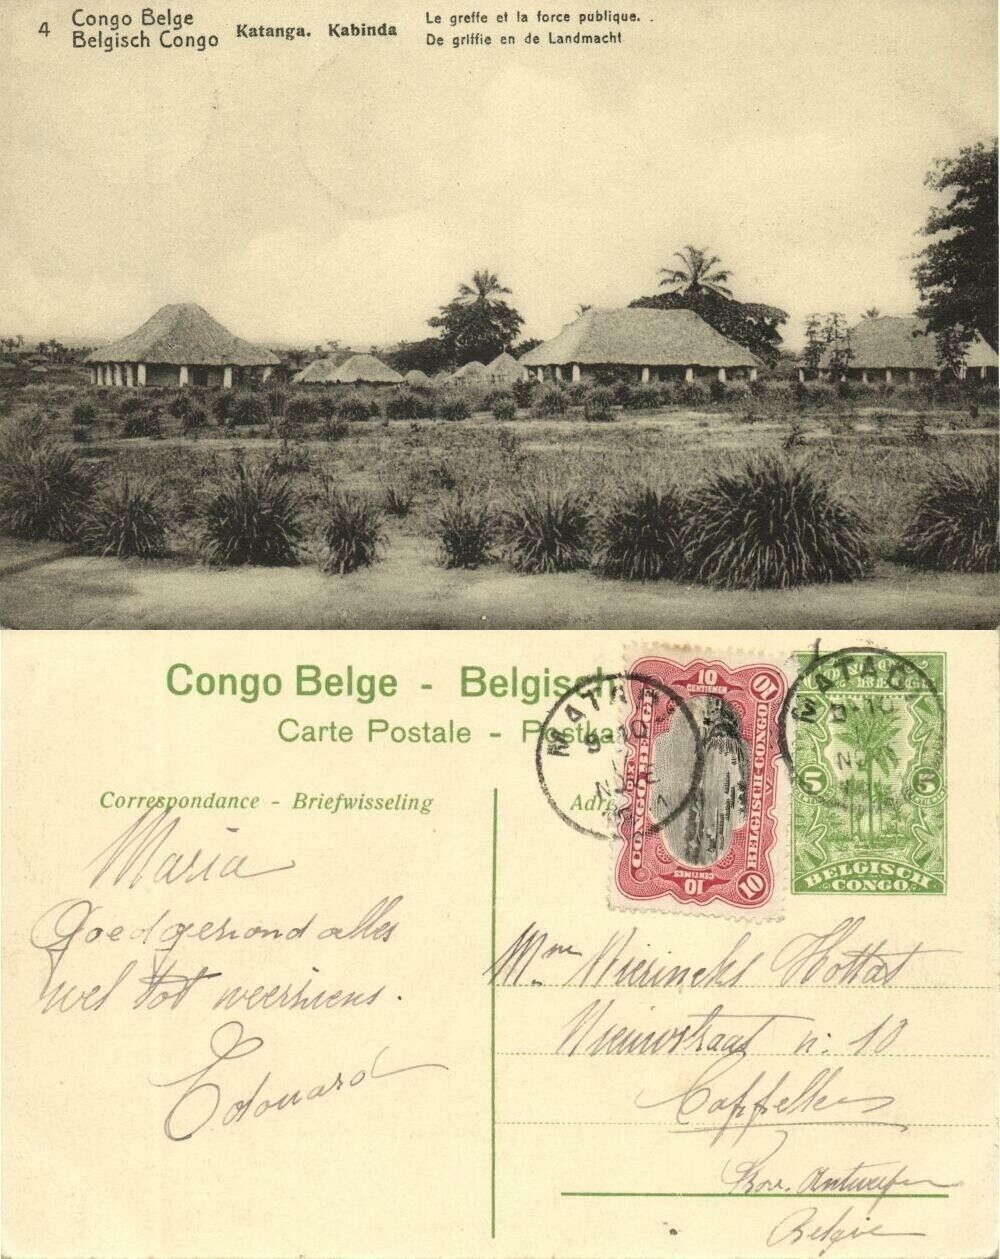 4 Congo Belge Katanga. Kabinda Le greffe et la force publique.
Belgisch Congo De griffie en de Landmacht
Congo Belge - Belgisch
Carte Postale - Postka
Correspondance - Briefwisseling
Adre
MATADI
9-10
MATADI
9-10
10 CENTIEMEN 10
CONGO BELGE
BELGISCH-CONGO
DIX
10 CENTIMES 10
5 5
BELGISCH
CONGO
Maria
Goed gezond alles
wel tot weerziens.
Edouard
Mme Wierincks Hottat
Nieuwstraat n: 10
Cappellen
Prov. Antwerpen
Belgie